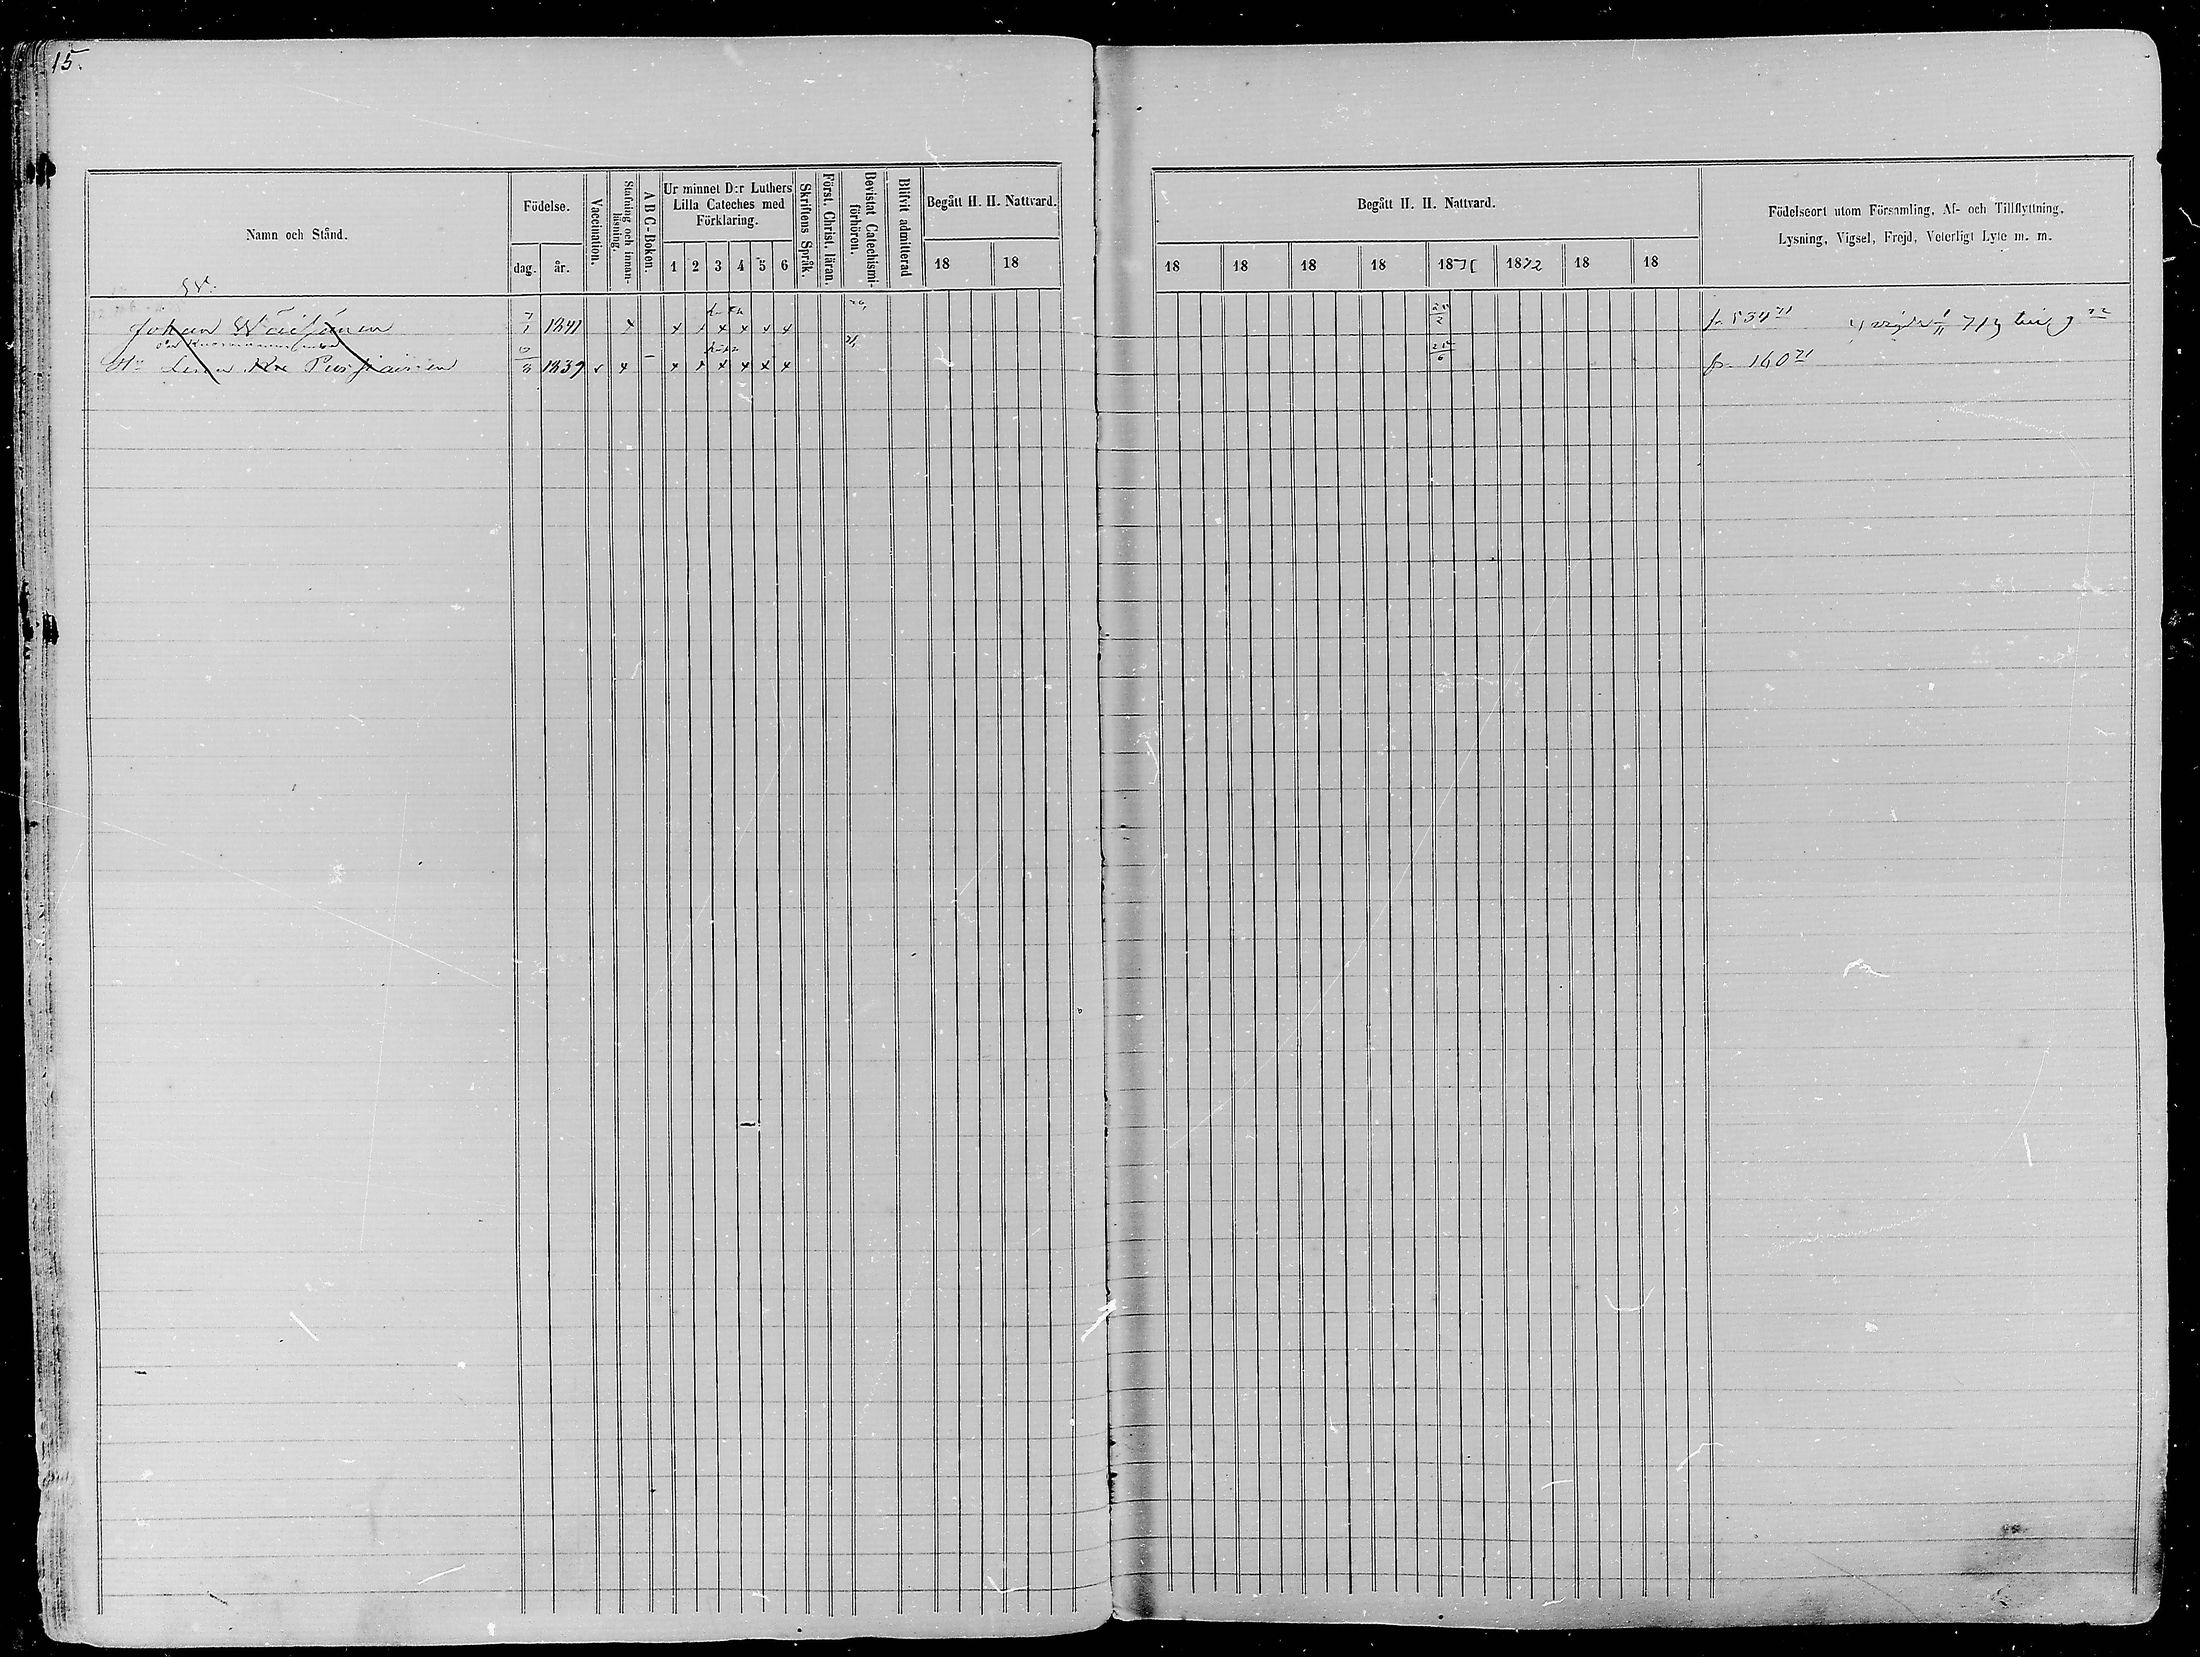 15.
Namn och Stånd.
Födelse.
dag.
år.
Vaccination.
Stafning och innan-
läsning.
A B C-Boken.
Ur minnet D:r Luthers
Lilla Cateches med
Förklaring.
1 2 3 4 5 6
Skriftens Språk.
Först. Christ. läran.
Bevistat Catechismi-
förhören.
Blifvit admitterad
Begått H. H. Nattvard.
18 18
Begått H. H. Nattvard.
18 18 18 18 1871 1872 18 18
Födelseort utom Församling, Af- och Tillflyttning,
Lysning, Vigsel, Frejd, Veterligt Lyte m. m.
W.
Johan 7/1 1841 x x x x x x x 25/2 fr. 534 71
Hu 1839 x x – x x x x x x 24/6 fr. 160 71